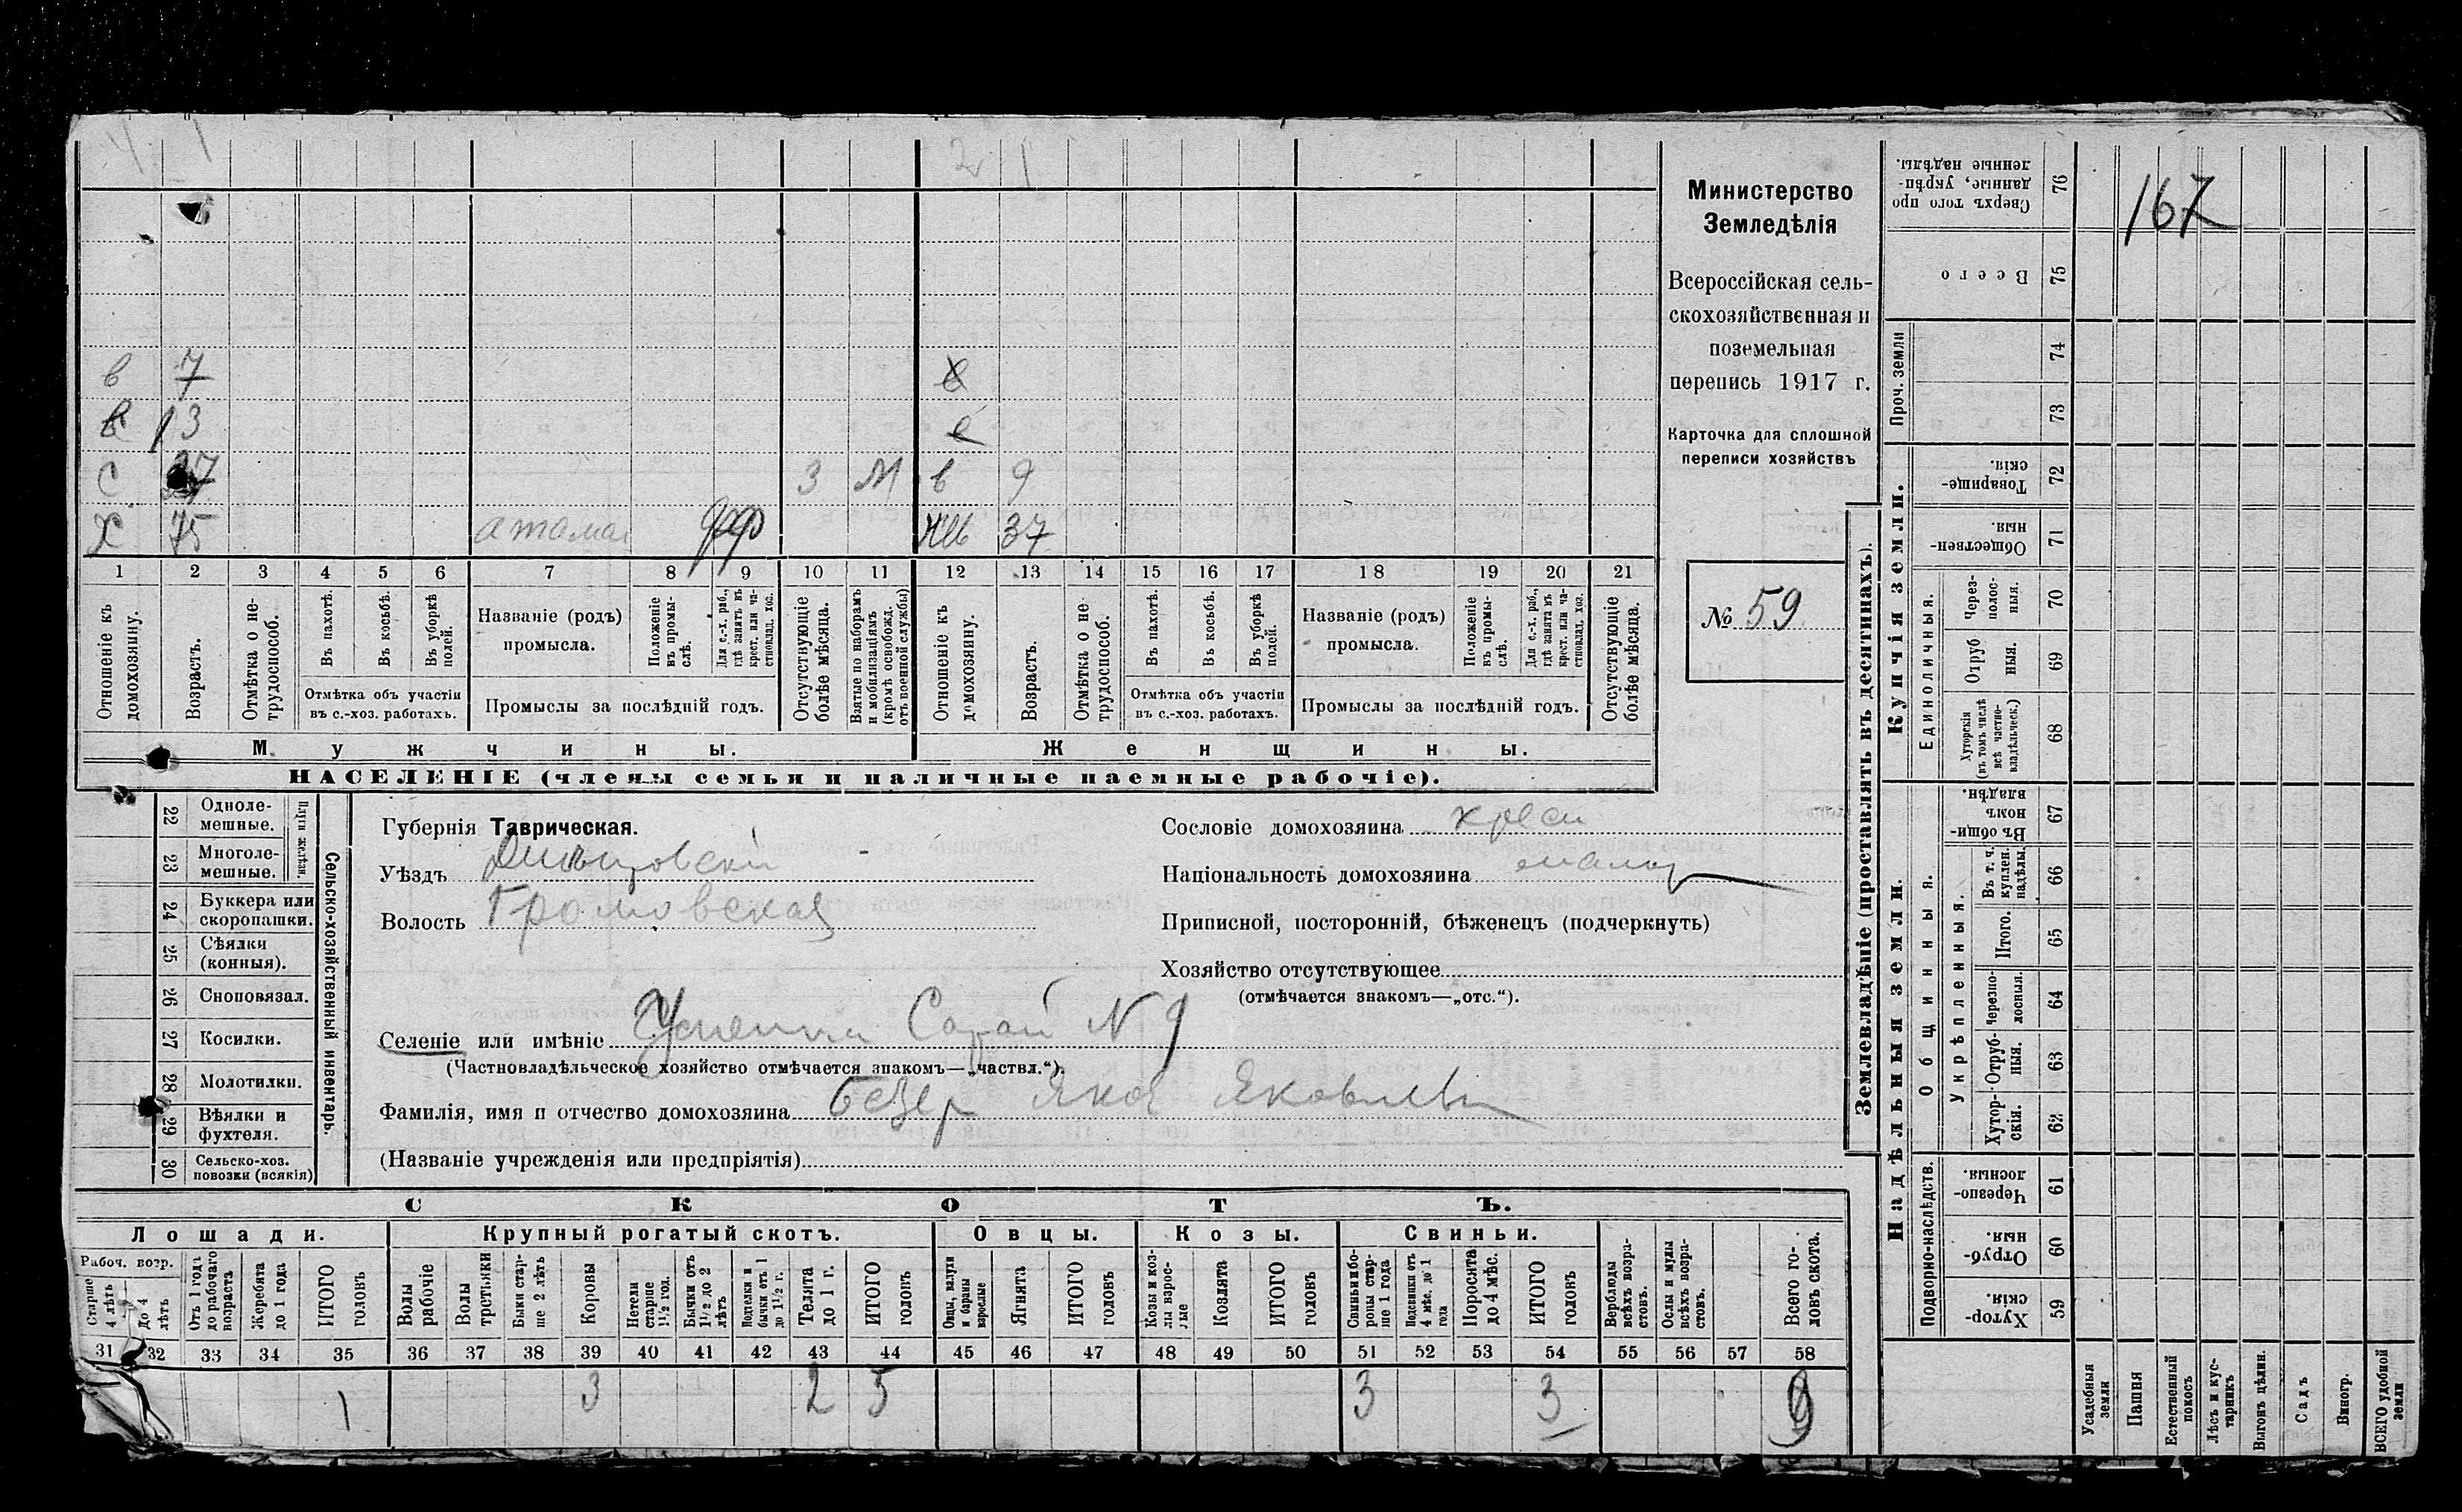 2 1
167
в 7
в 13
с 27 3 М в 9
Х 75 жв 37
1 2 3 4 5 6 7 8 9 10 11 12 13 14 15 16 17 18 19 20 21
Отношеніе къ домохозяину.
Возрастъ.
Отмѣтка о не-трудоспособ.
Въ пахотѣ.
Въ косьбѣ.
Въ уборкѣ полей.
Отмѣтка объ участіи въ с.-хоз. работахъ.
Названіе (родъ) промысла.
Положеніе въ промы-слѣ.
Для с.-х. раб., гдѣ занятъ въ крест. или ча-стновлад. хоз.
Промыслы за послѣдній годъ.
Отсутствующіе болѣе мѣсяца.
Взятые по наборамъ и мобилизаціямъ (кромѣ освобожд. отъ военной службы)
Отношеніе къ домохозяину.
Возрастъ.
Отмѣтка о не трудоспособ.
Въ пахотѣ.
Въ косьбѣ.
Въ уборкѣ полей.
Отмѣтка объ участіи въ с.-хоз. работахъ.
Названіе (родъ) промысла.
Положеніе въ промы-слѣ.
Для с.-х. раб., гдѣ занята въ крест. или ча-стновлад. хоз.
Промыслы за послѣдній годъ.
Отсутствующіе болѣе мѣсяца.
Мужчины.
Женщины.
НАСЕЛЕНІЕ (члены семьи и наличные наемные рабочіе).
Министерство
Земледѣлія
Всероссійская сель-
скохозяйственная и
поземельная
перепись 1917 г.
Карточка для сплошной
переписи хозяйствъ
№ 59
22 Одноле-мешные.
23 Многоле-мешные.
Плуги желѣзн.
24 Буккера или скоропашки.
25 Сѣялки (конныя).
26 Сноповязал.
27 Косилки.
28 Молотилки.
29 Вѣялки и фухтеля.
30 Сельско-хоз. повозки (всякія)
Сельско-хозяйственный инвентарь.
Губернія Таврическая.
Уѣздъ
Волость Громовская
Селеніе или имѣніе Сарай N 9
(Частновладѣльческое хозяйство отмѣчается знакомъ—„частвл.“).
Фамилія, имя и отчество домохозяина
(Названіе учрежденія или предпріятія)
Сословіе домохозяина крест
Національность домохозяина малор
Приписной, посторонній, бѣженецъ (подчеркнуть)
Хозяйство отсутствующее
(отмѣчается знакомъ—„отс.“).
СКОТЪ.
Лошади.
Крупный рогатый скотъ.
Овцы.
Козы.
Свиньи.
Рабоч. возр.
Старше 4 лѣтъ
До 4 лѣтъ
Отъ 1 года до рабочаго возраста
Жеребята до 1 года
ИТОГО головъ
Волы рабочіе
Волы трстьяки
Быки стар-ше 2 лѣтъ
Коровы
Нетели старше 1½ год.
Бычки отъ 1½ до 2 лѣтъ
Подтелки и бычки отъ 1 до 1½ г.
Телята до 1 г.
ИТОГО головъ
Овцы, валухи и бараны взрослые
Ягнята
ИТОГО головъ
Козы и коз-лы взрос-лые
Козлята
ИТОГО головъ
Свиньи и бо-ровы стар-ше 1 года
Подсвинки отъ 4 мѣс. до 1 года
Поросята до 4 мѣс.
ИТОГО головъ
Верблюды всѣхъ возра-стовъ.
Ослы и мулы всѣхъ возра-стовъ.
Всего го-ловъ скота.
31 32 33 34 35 36 37 38 39 40 41 42 43 44 45 46 47 48 49 50 51 52 53 54 55 56 57 58
1 3 2 5 3 3 9
Землевладѣніе (проставлять въ десятинахъ).
Купчія земли.
Надѣльныя земли.
Проч. земли
Единоличныя.
Общинныя.
Укрѣпленныя.
Подворно-наслѣдств.
Сверхъ того про данные, укрѣп-ленные надѣлы. 76
Всего 75
74
73
Товарище-скія. 72
Обществен-ныя. 71
Через-полос-ныя. 70
Отруб ныя. 69
Хуторскія (въ томъ числѣ всѣ частно-владѣльческ.) 68
Въ общи-номъ владѣн. 67
Въ т. ч. куплен. надѣлы. 66
Итого. 65
Черезпо-лосныя. 64
Отруб-ныя. 63
Хутор-скія. 62
Черезпо-лосныя. 61
Отруб-ныя. 60
Хутор-скія. 59
Усадебныя земли
Пашня
Естественный покосъ
Лѣсъ и кус-тарникъ
Выгонъ цѣлин.
Садъ
Виногр.
ВСЕГО удобной земли